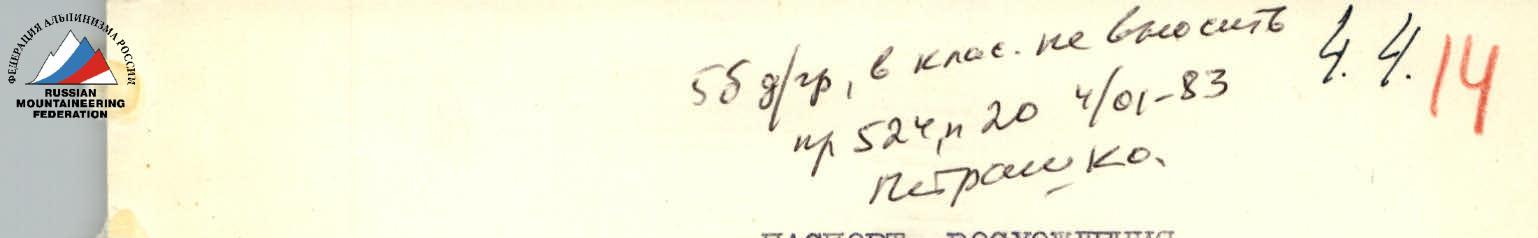 ФЕДЕРАЦИЯ АЛЬПИНИЗМА РОССИИ
RUSSIAN
MOUNTAINEERING
FEDERATION
5б д/гр, в клас. не вносить
пр 524, п 20 4/01-83
Петрашко.
4.4.14
ПАСПОРТ ВОСХОЖДЕНИЯ